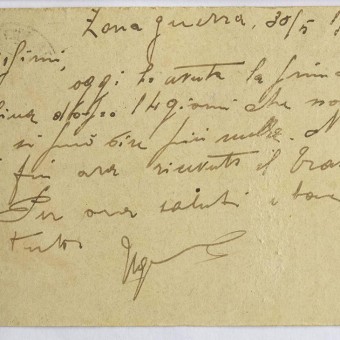 Zona guerra, 30/5
oggi ho avuta la prima
dopo 14 giorni che no
si può dire più nulla. N
fin ora ricevuto il
Per ora saluti e baci
tutti